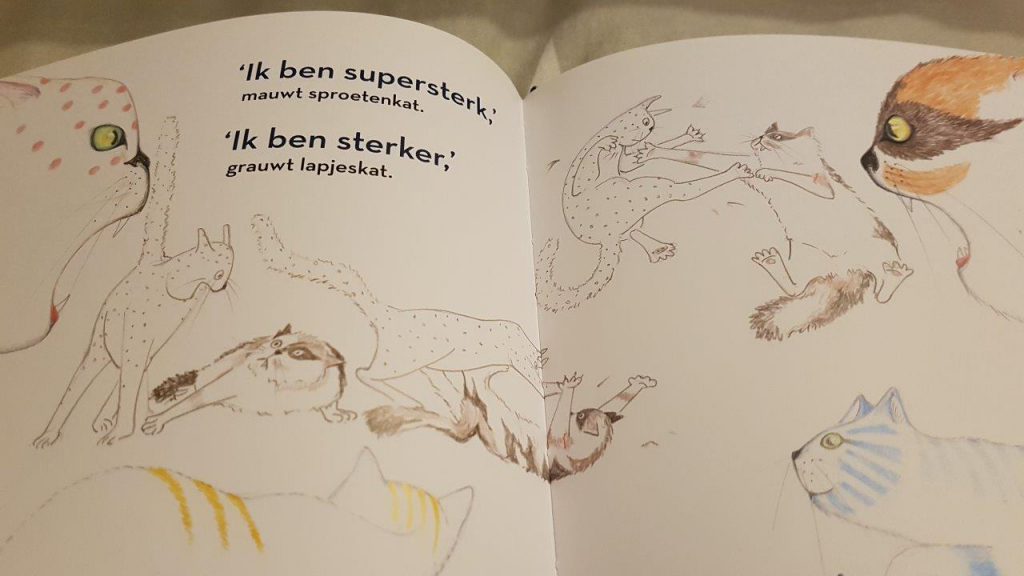 ‘Ik ben supersterk,’
mauwt sproetenkat.
‘Ik ben sterker,’
grauwt lapjeskat.